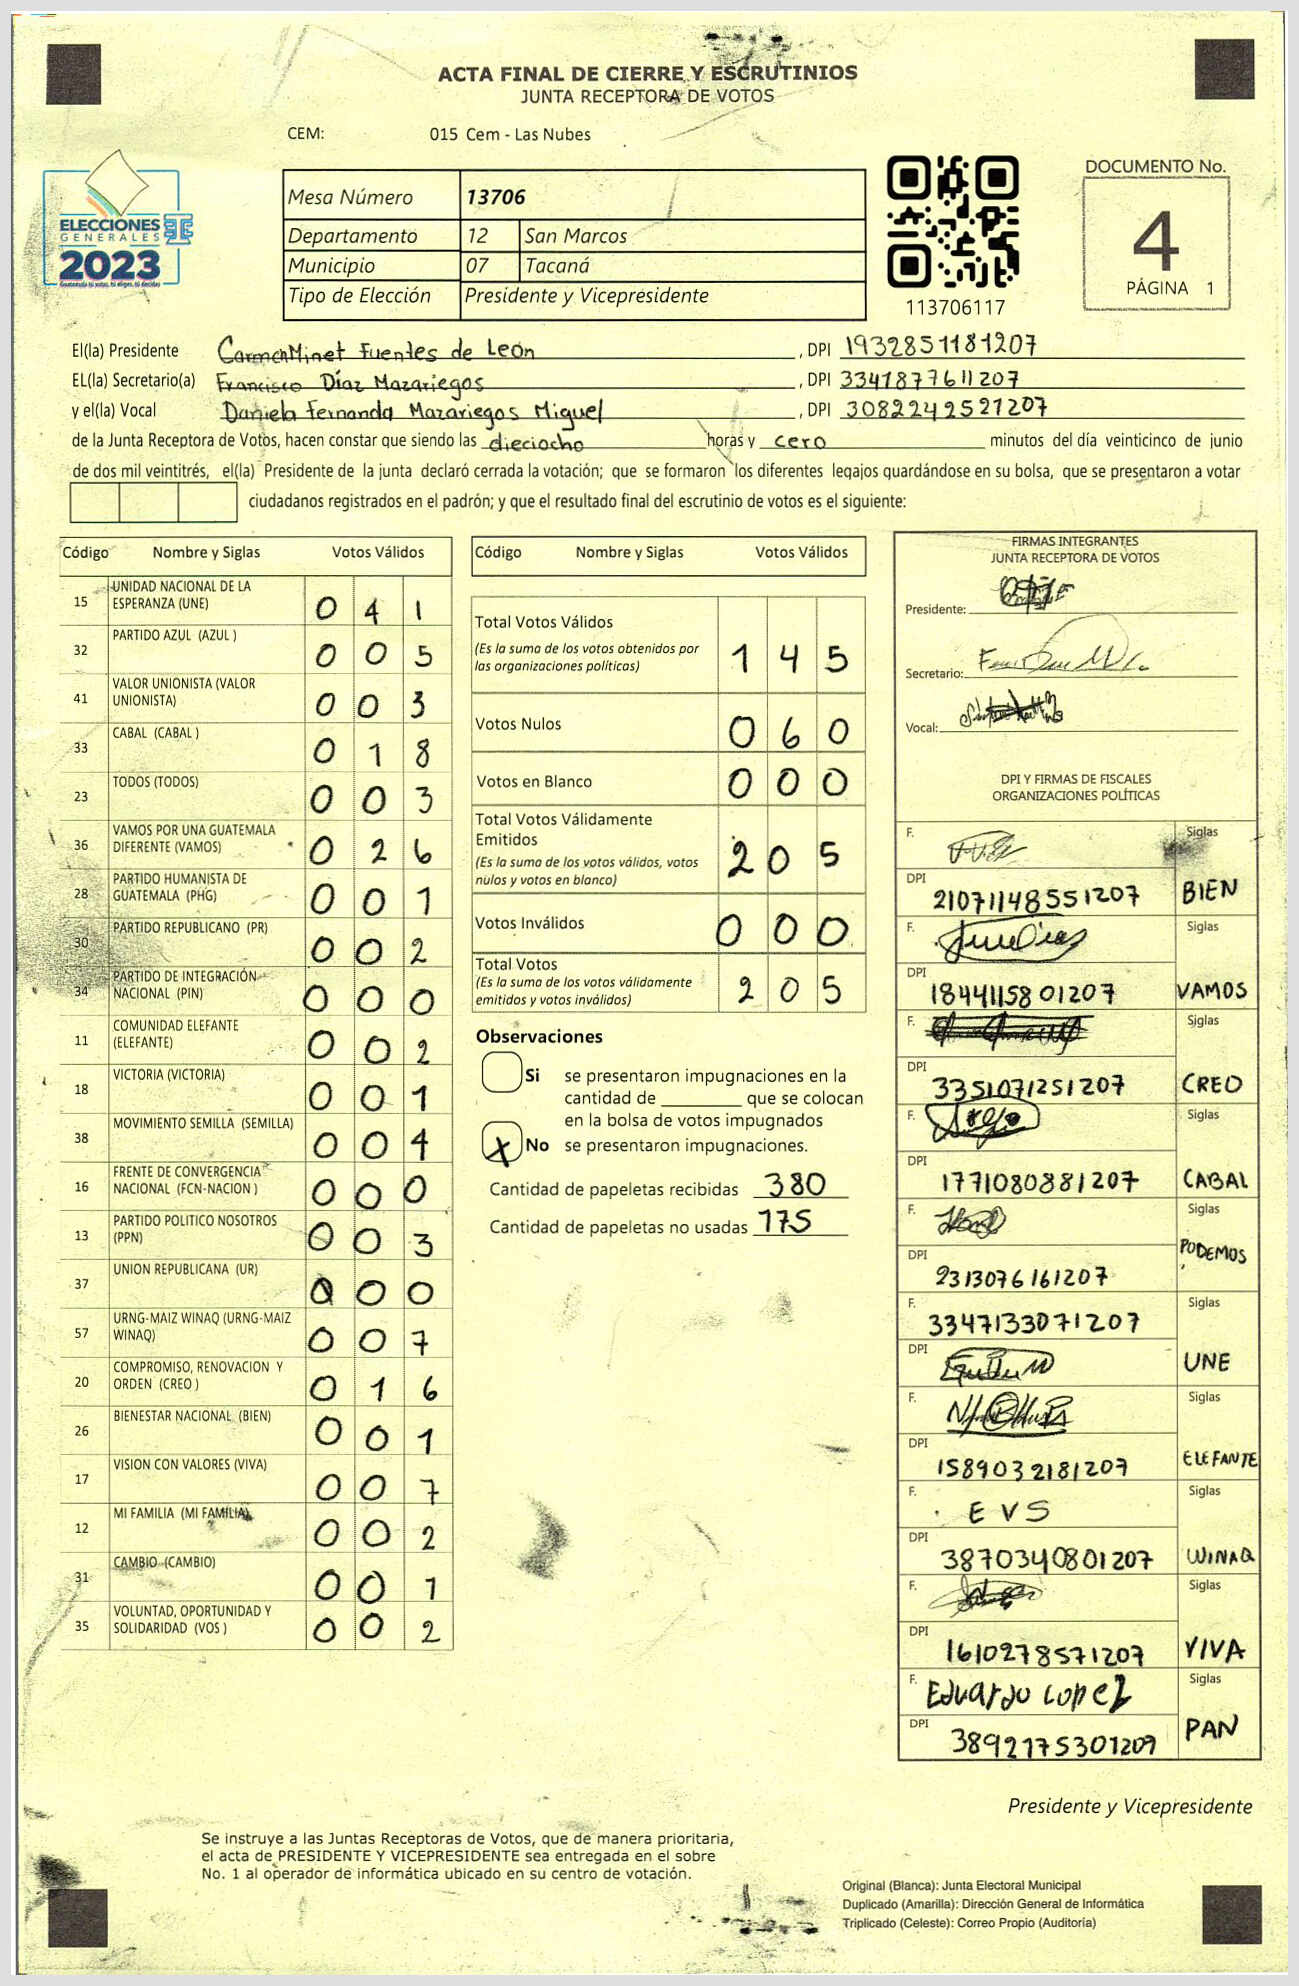 ACTA FINAL DE CIERRE Y ESCRUTINIOS
JUNTA RECEPTORA DE VOTOS
CEM: 015 Cem - Las Nubes
ELECCIONES
GENERALES
2023
Guatemala tú votas, tú eliges, tú decides
Mesa Número 13706
Departamento 12 San Marcos
Municipio 07 Tacaná
Tipo de Elección Presidente y Vicepresidente
113706117
DOCUMENTO No.
4
PÁGINA 1
El(la) Presidente Carmen Minet Fuentes de León , DPI 1932851181207
EL(la) Secretario(a) Francisco Díaz Mazariegos , DPI 3341877611207
y el(la) Vocal Daniela Fernanda Mazariegos Miguel , DPI 3082242521207
de la Junta Receptora de Votos, hacen constar que siendo las dieciocho horas y cero minutos del día veinticinco de junio
de dos mil veintitrés, el(la) Presidente de la junta declaró cerrada la votación; que se formaron los diferentes legajos guardándose en su bolsa, que se presentaron a votar
ciudadanos registrados en el padrón; y que el resultado final del escrutinio de votos es el siguiente:
Código Nombre y Siglas Votos Válidos
15 UNIDAD NACIONAL DE LA ESPERANZA (UNE) 0 4 1
32 PARTIDO AZUL (AZUL ) 0 0 5
41 VALOR UNIONISTA (VALOR UNIONISTA) 0 0 3
33 CABAL (CABAL ) 0 1 8
23 TODOS (TODOS) 0 0 3
36 VAMOS POR UNA GUATEMALA DIFERENTE (VAMOS) 0 2 6
28 PARTIDO HUMANISTA DE GUATEMALA (PHG) 0 0 1
30 PARTIDO REPUBLICANO (PR) 0 0 2
34 PARTIDO DE INTEGRACIÓN NACIONAL (PIN) 0 0 0
11 COMUNIDAD ELEFANTE (ELEFANTE) 0 0 2
18 VICTORIA (VICTORIA) 0 0 1
38 MOVIMIENTO SEMILLA (SEMILLA) 0 0 4
16 FRENTE DE CONVERGENCIA NACIONAL (FCN-NACION ) 0 0 0
13 PARTIDO POLITICO NOSOTROS (PPN) 0 0 3
37 UNION REPUBLICANA (UR) 0 0 0
57 URNG-MAIZ WINAQ (URNG-MAIZ WINAQ) 0 0 7
20 COMPROMISO, RENOVACION Y ORDEN (CREO ) 0 1 6
26 BIENESTAR NACIONAL (BIEN) 0 0 1
17 VISION CON VALORES (VIVA) 0 0 7
12 MI FAMILIA (MI FAMILIA) 0 0 2
31 CAMBIO (CAMBIO) 0 0 1
35 VOLUNTAD, OPORTUNIDAD Y SOLIDARIDAD (VOS ) 0 0 2
Código Nombre y Siglas Votos Válidos
Total Votos Válidos 1 4 5
(Es la suma de los votos obtenidos por
las organizaciones políticas)
Votos Nulos 0 6 0
Votos en Blanco 0 0 0
Total Votos Válidamente
Emitidos 2 0 5
(Es la suma de los votos válidos, votos
nulos y votos en blanco)
Votos Inválidos 0 0 0
Total Votos 2 0 5
(Es la suma de los votos válidamente
emitidos y votos inválidos)
Observaciones
Si se presentaron impugnaciones en la
cantidad de ________ que se colocan
en la bolsa de votos impugnados
X No se presentaron impugnaciones.
Cantidad de papeletas recibidas 380
Cantidad de papeletas no usadas 175
FIRMAS INTEGRANTES
JUNTA RECEPTORA DE VOTOS
Presidente:
Secretario:
Vocal:
DPI Y FIRMAS DE FISCALES
ORGANIZACIONES POLÍTICAS
F. Siglas
DPI 21071148551207 BIEN
F. Siglas
DPI 1844115801207 VAMOS
F. Siglas
DPI 3351071251207 CREO
F. Siglas
DPI 1771080881207 CABAL
F. Siglas
DPI 2313076161207 PODEMOS
F. 3347133071207 Siglas
DPI UNE
F. Siglas
DPI 1589032181207 ELEFANTE
F. EVS Siglas
DPI 3870340801207 WINAQ
F. Siglas
DPI 1610278571207 VIVA
F. Eduardo Lopez Siglas
DPI 3892175301207 PAN
Presidente y Vicepresidente
Se instruye a las Juntas Receptoras de Votos, que de manera prioritaria,
el acta de PRESIDENTE Y VICEPRESIDENTE sea entregada en el sobre
No. 1 al operador de informática ubicado en su centro de votación.
Original (Blanca): Junta Electoral Municipal
Duplicado (Amarilla): Dirección General de Informática
Triplicado (Celeste): Correo Propio (Auditoría)